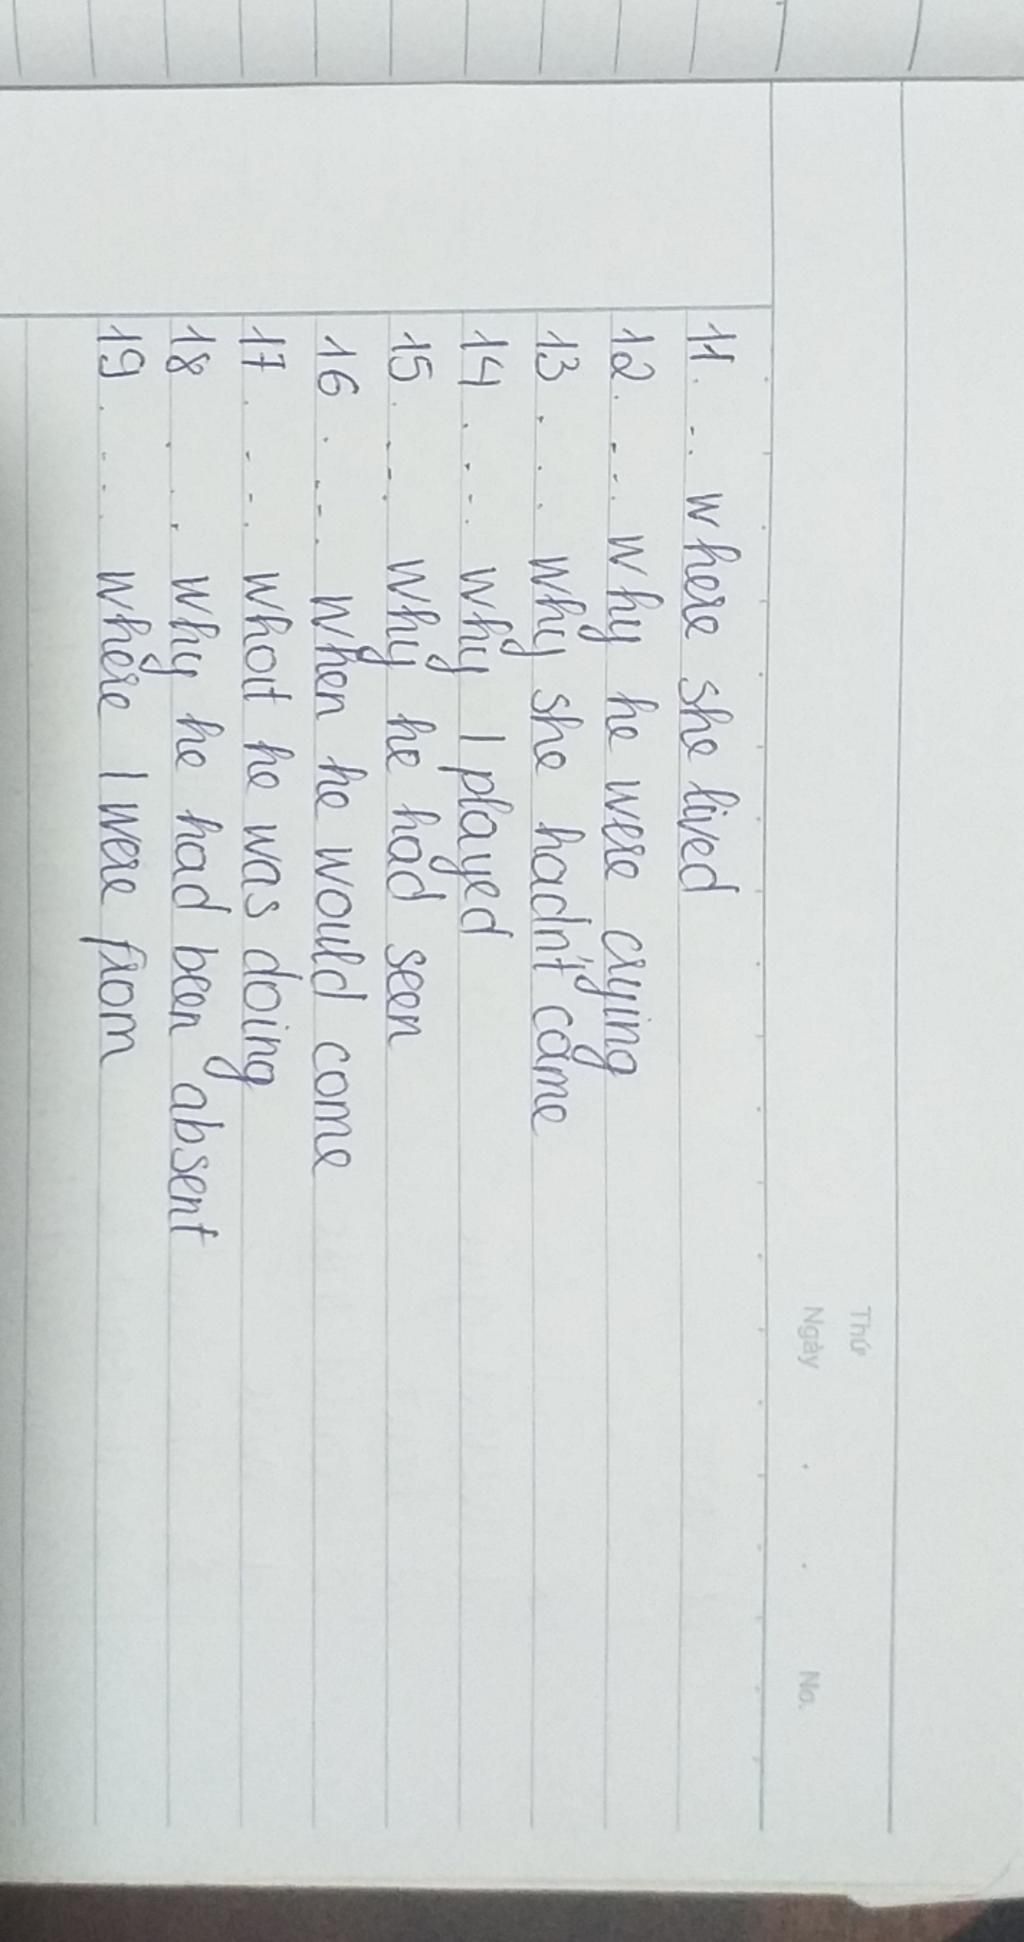 Thứ
Ngày . . No.
11. .. where she lived
12. ... why he were crying
13. ... why she hadn't came
14. ... why I played
15. ... why he had seen
16. ... when he would come
17. ... what he was doing
18. .. why he had been absent
19. ... where I were from